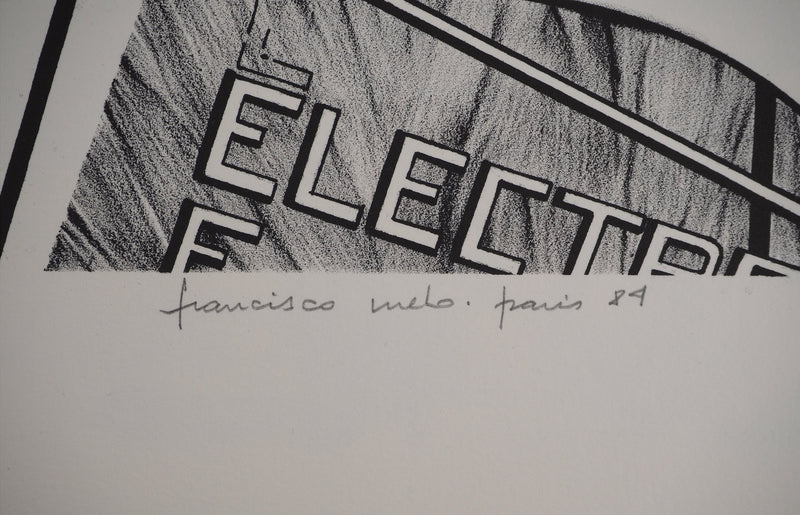 ELECTRE
E
francisco melo. paris 84